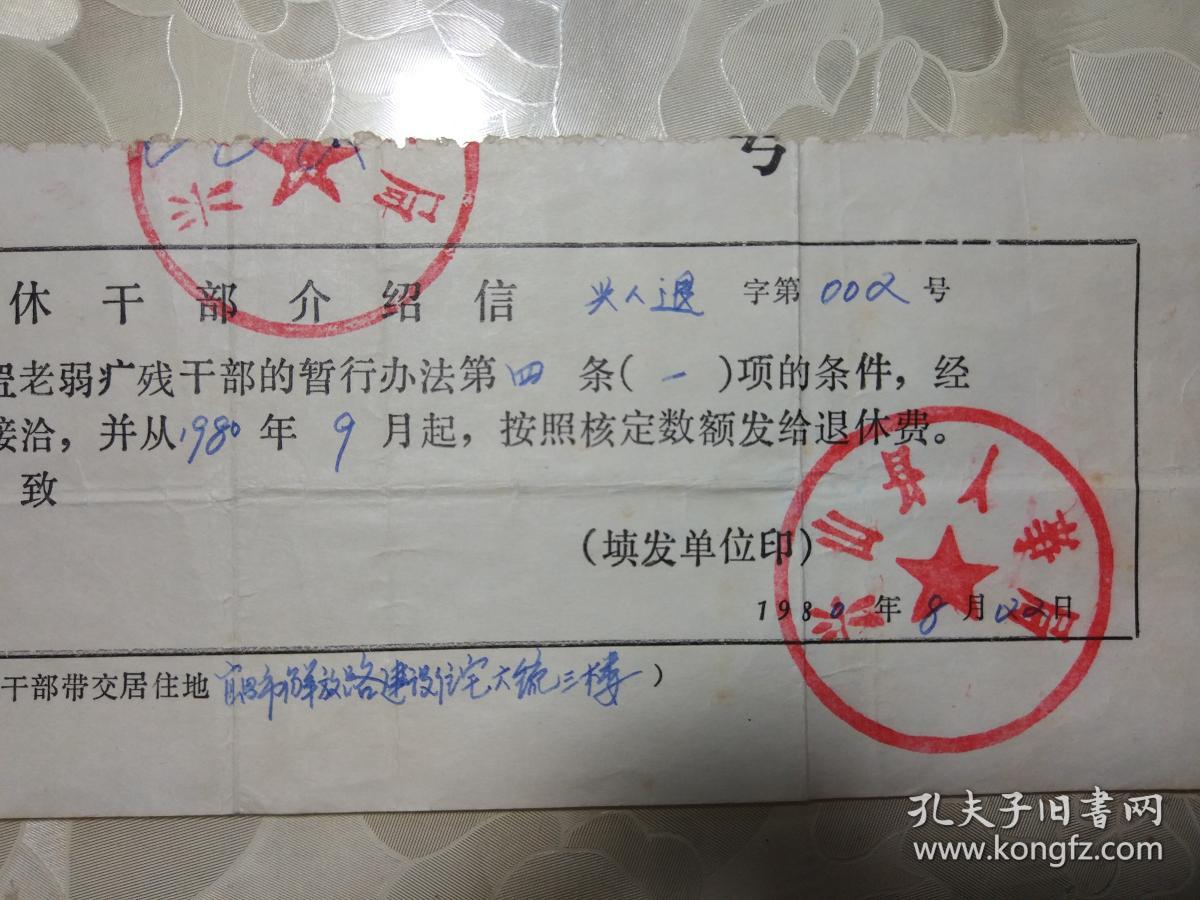 号
兴 局
休干部介绍信 兴人退 字第 002 号
置老弱疒残干部的暂行办法第四条(一)项的条件，经
接洽，并从1980年9月起，按照核定数额发给退休费。
致
兴山县人事局
(填发单位印)
1980年8月22日
干部带交居住地 宜昌市解放路建设住宅大统三楼)
孔夫子旧书网
www.kongfz.com